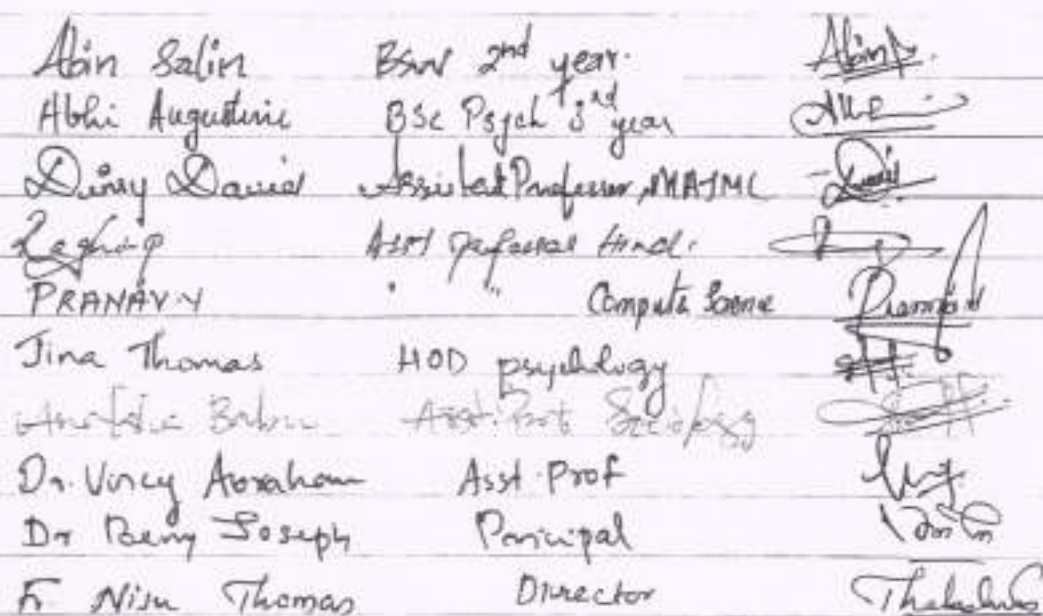 Abin Salin BSW 2nd year. Abin
Abhi Augustine BSc Psych 3rd year
Dinsy David Assistant Professor, MAJMC
Asst Professor Hindi.
PRANAV.V " " Computer Science Pranav
Jina Thomas HOD psychology
Babu Asst. Prof Sociology
Dr. Vincy Abraham Asst. Prof
Dr Beny Joseph Principal
Fr Niju Thomas Director